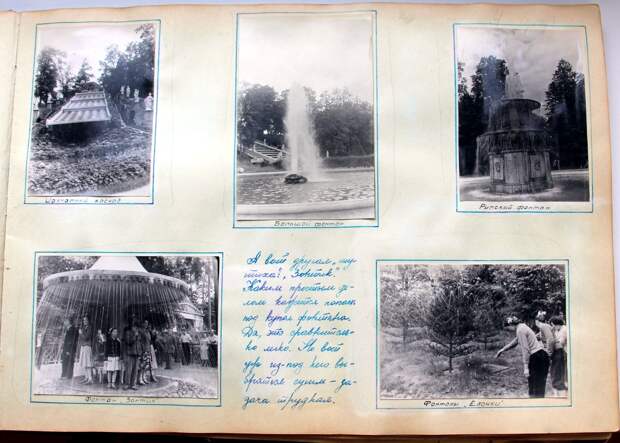 Шахматный каскад
Большой фонтан
Римский фонтан
А вот другая „шу
тиха“, „Зонтик“.
Каким простым де-
лом кажется попасть
под купол фонтана.
Да, это сравнитель-
но легко. Но вот
уж из-под него вы-
браться сухим – за-
дача трудная.
Фонтан „Зонтик“
Фонтаны „Елочки“